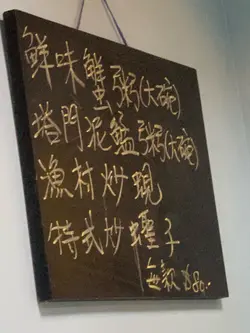 鮮味蟹粥(大碗)
塔門泥鯭粥(大碗)
漁村炒現
特式炒蟶子
每款$80.-